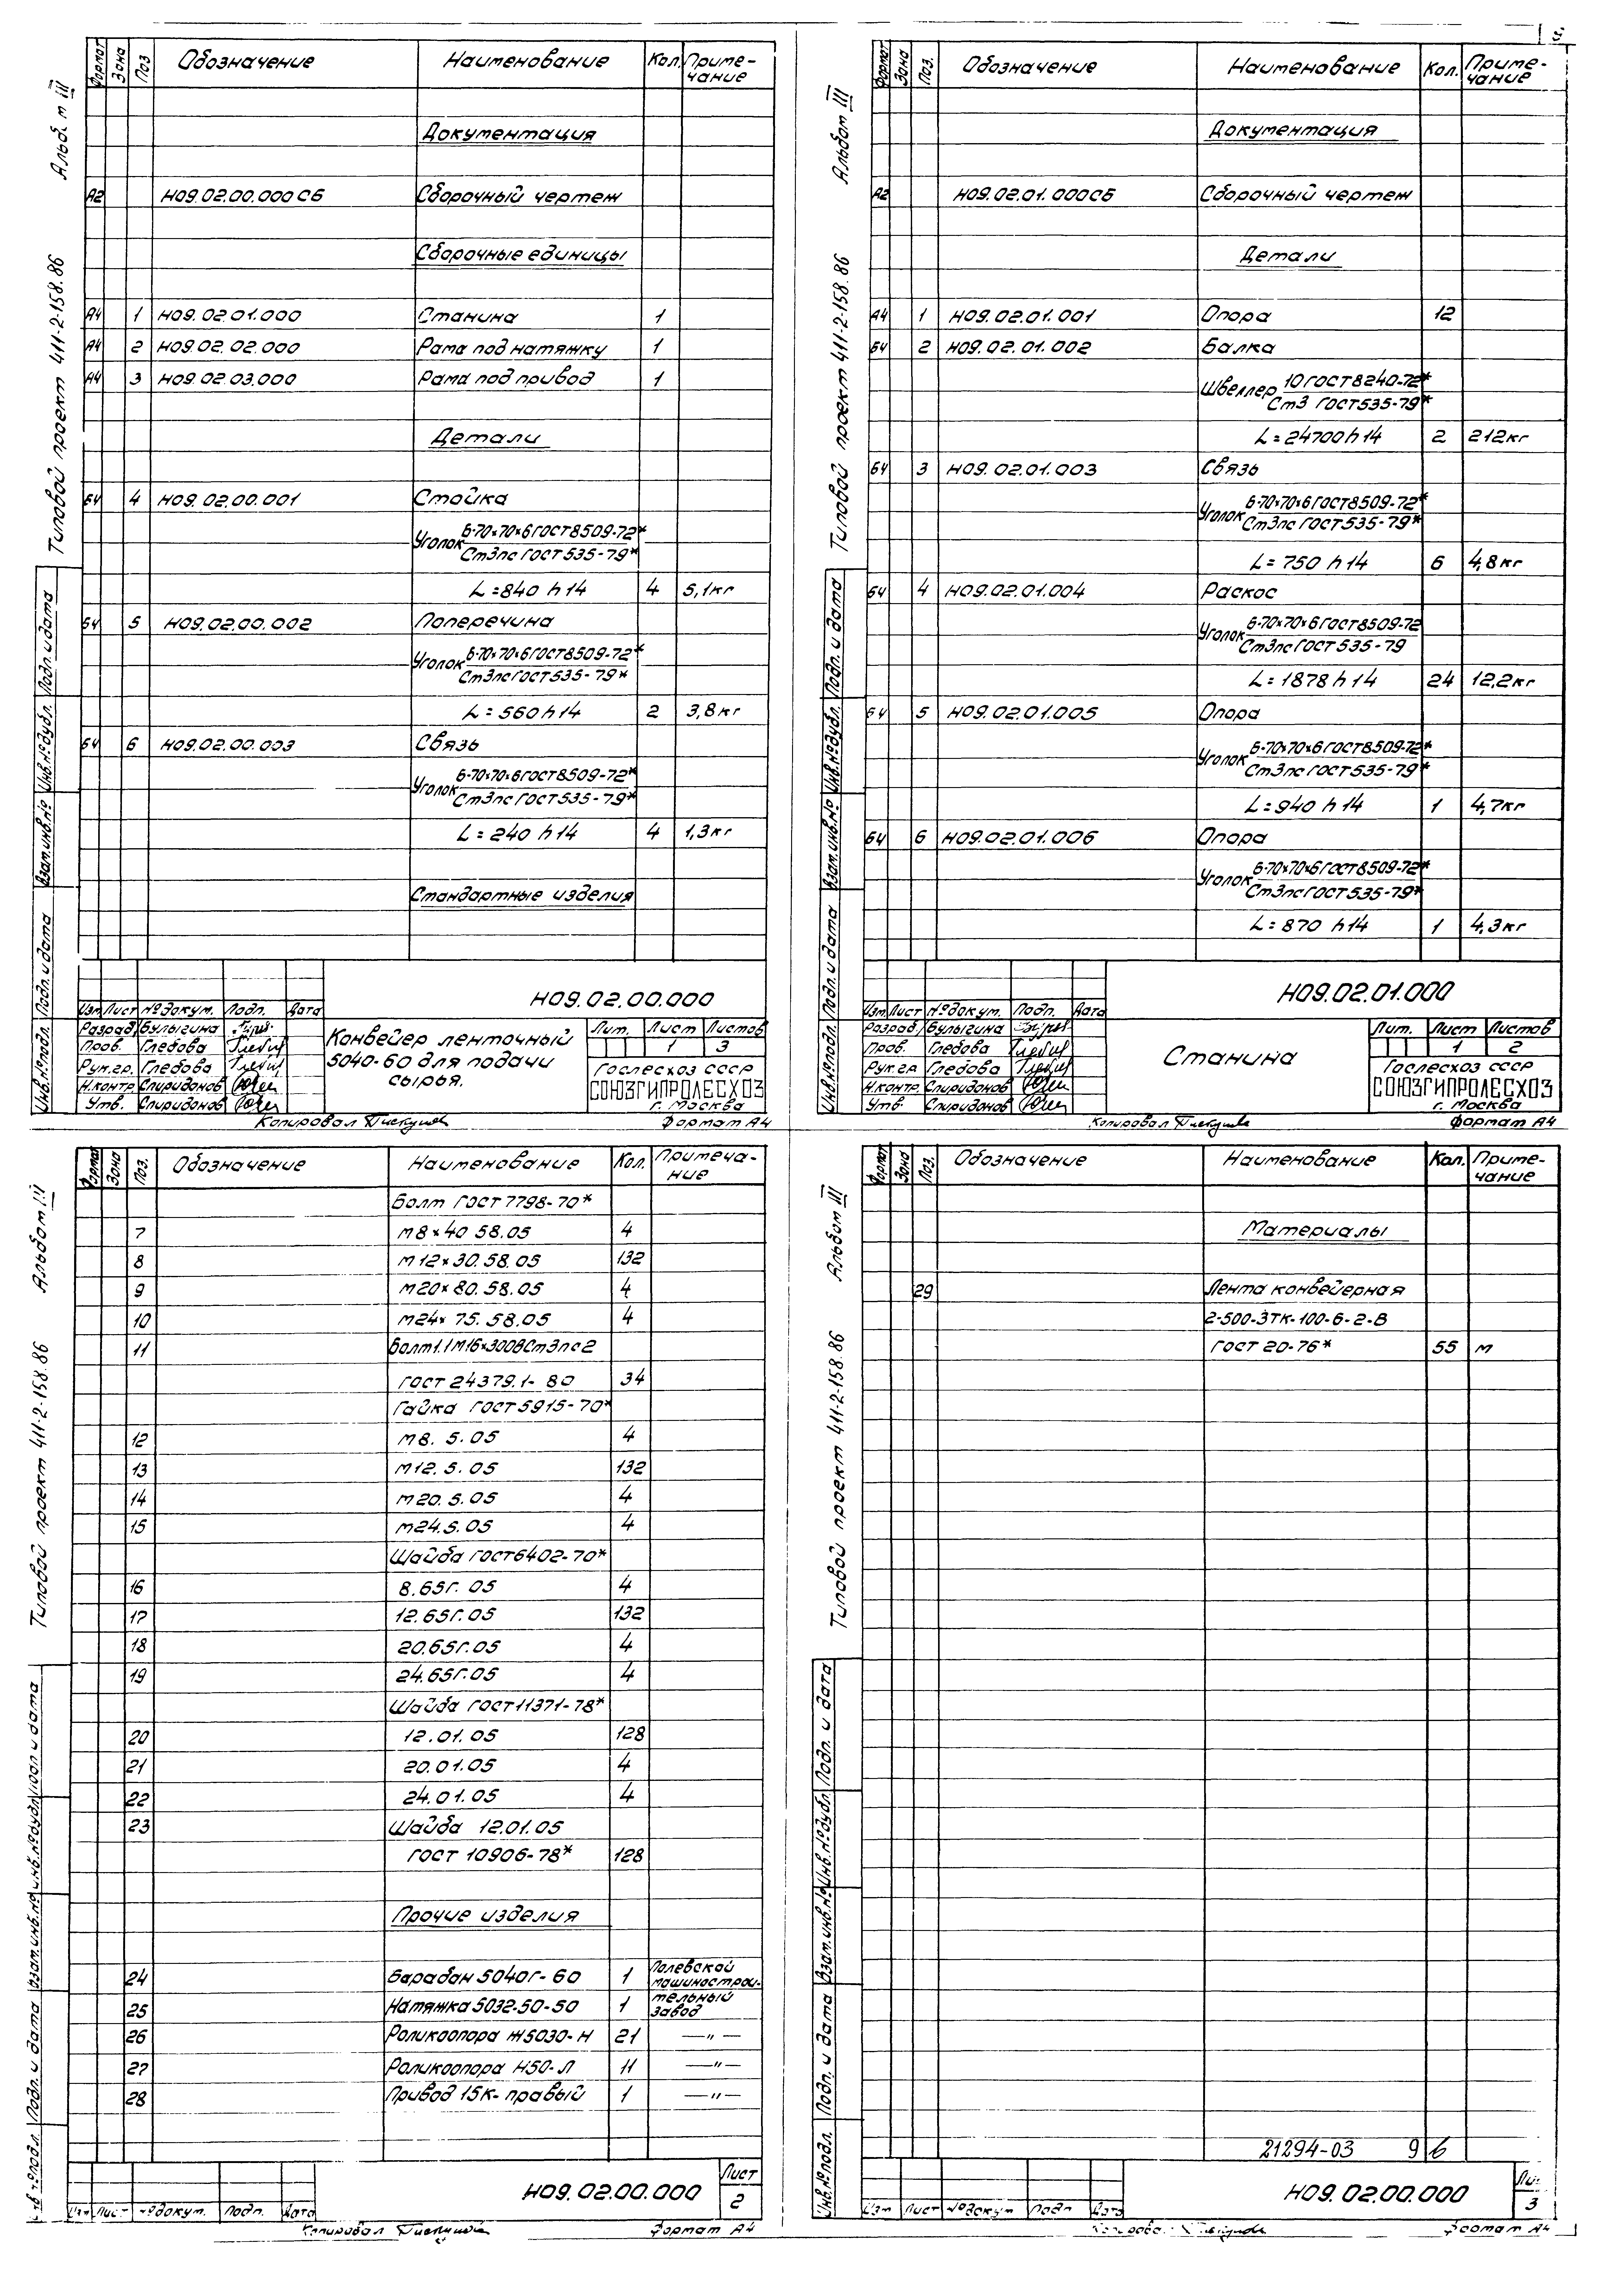 5
Альбом III
Типовой проект 411-2-158.86
Формат Зона Поз Обозначение Наименование Кол. Приме-
чание
Документация
А2 Н09.02.00.000СБ Сборочный чертеж
Сборочные единицы
А4 1 Н09.02.01.000 Станина 1
А4 2 Н09.02.02.000 Рама под натяжку 1
А4 3 Н09.02.03.000 Рама под привод 1
Детали
БЧ 4 Н09.02.00.001 Стойка
Уголок Б-70×70×6 ГОСТ 8509-72*
Ст3пс ГОСТ 535-79*
L=840 h14 4 5,1кг
БЧ 5 Н09.02.00.002 Поперечина
Уголок Б-70×70×6 ГОСТ 8509-72*
Ст3пс ГОСТ 535-79*
L=560 h14 2 3,8кг
БЧ 6 Н09.02.00.003 Связь
Уголок Б-70×70×6 ГОСТ 8509-72*
Ст3пс ГОСТ 535-79*
L=240 h14 4 1,3кг
Стандартные изделия
Инв.№подл. Подп. и дата Взам.инв.№ Инв.№дубл. Подп. и дата
Н09.02.00.000
Изм Лист №докум. Подп. Дата
Разраб. Булыгина
Пров. Глебова
Рук.гр. Глебова
Н.контр. Спиридонов
Утв. Спиридонов
Конвейер ленточный
5040-60 для подачи
сырья.
Лит. Лист Листов
1 3
Гослесхоз СССР
СОЮЗГИПРОЛЕСХОЗ
г. Москва
Копировал Формат А4
Альбом III
Типовой проект 411-2-158.86
Формат Зона Поз. Обозначение Наименование Кол. Приме-
чание
Документация
А2 Н09.02.01.000СБ Сборочный чертеж
Детали
А4 1 Н09.02.01.001 Опора 12
БЧ 2 Н09.02.01.002 Балка
Швеллер 10 ГОСТ 8240-72*
Ст3 ГОСТ 535-79*
L=24700 h14 2 212кг
БЧ 3 Н09.02.01.003 Связь
Уголок Б-70×70×6 ГОСТ 8509-72*
Ст3пс ГОСТ 535-79*
L=750 h14 6 4,8кг
БЧ 4 Н09.02.01.004 Раскос
Уголок Б-70×70×6 ГОСТ 8509-72
Ст3пс ГОСТ 535-79
L=1878 h14 24 12,2кг
БЧ 5 Н09.02.01.005 Опора
Уголок Б-70×70×6 ГОСТ 8509-72*
Ст3пс ГОСТ 535-79*
L=940 h14 1 4,7кг
БЧ 6 Н09.02.01.006 Опора
Уголок Б-70×70×6 ГОСТ 8509-72*
Ст3пс ГОСТ 535-79*
L=870 h14 1 4,3кг
Инв.№подл. Подп. и дата Взам.инв.№ Инв.№дубл. Подп. и дата
Н09.02.01.000
Изм Лист №докум. Подп. Дата
Разраб. Булыгина
Пров. Глебова
Рук.гр. Глебова
Н.контр. Спиридонов
Утв. Спиридонов
Станина
Лит. Лист Листов
1 2
Гослесхоз СССР
СОЮЗГИПРОЛЕСХОЗ
г. Москва
Копировал Формат А4
Альбом III
Типовой проект 411-2-158.86
Формат Зона Поз. Обозначение Наименование Кол. Примеча-
ние
Болт ГОСТ 7798-70*
7 М8×40 58.05 4
8 М12×30.58.05 132
9 М20×80.58.05 4
10 М24×75.58.05 4
11 Болт1.1М16×300ВСт3пс2
ГОСТ 24379.1-80 34
Гайка ГОСТ 5915-70*
12 М8. 5.05 4
13 М12.5.05 132
14 М20.5.05 4
15 М24.5.05 4
Шайба ГОСТ 6402-70*
16 8.65Г.05 4
17 12.65Г.05 132
18 20.65Г.05 4
19 24.65Г.05 4
Шайба ГОСТ 11371-78*
20 12.01.05 128
21 20.01.05 4
22 24.01.05 4
23 Шайба 12.01.05
ГОСТ 10906-78* 128
Прочие изделия
24 Барабан 5040Г-60 1 Полевской
машинострои-
25 Натяжка 5032-50-50 1 тельный
завод
26 Роликоопора Ж5030-Н 21 —"—
27 Роликоопора Н50-Л 11 —"—
28 Привод 15К-правый 1 —"—
Подп. и дата Взам.инв.№ Инв.№дубл. Подп. и дата
Изм Лист №докум. Подп. Дата
Н09.02.00.000
Лист
2
Копировал Формат А4
Альбом III
Типовой проект 411-2-158.86
Формат Зона Поз. Обозначение Наименование Кол. Приме-
чание
Материалы
29 Лента конвейерная
2-500-3ТК-100-6-2-В
ГОСТ 20-76* 55 м
Инв.№подл. Подп. и дата Взам.инв.№ Инв.№дубл. Подп. и дата
21294-03 9 6
Изм Лист №докум Подп Дата
Н09.02.00.000
3
Формат А4